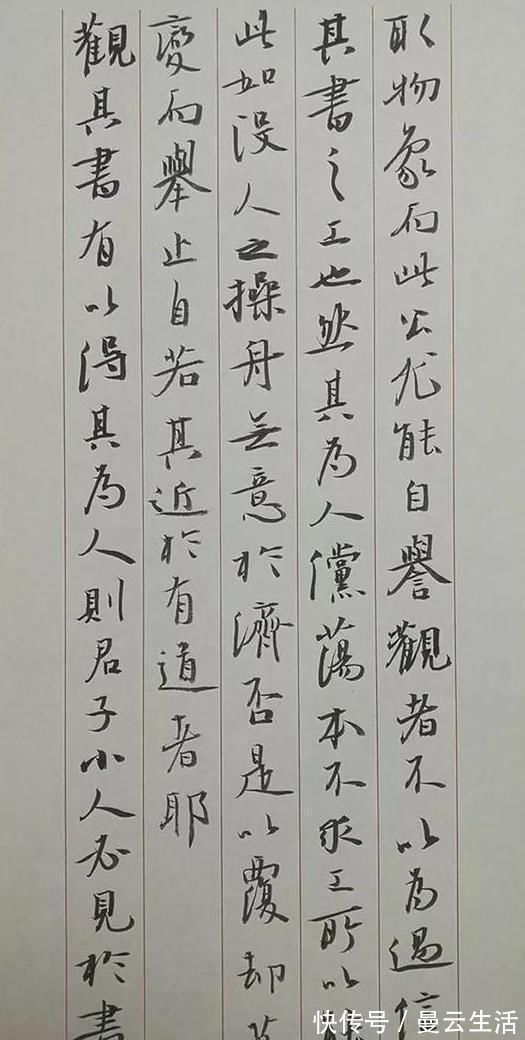 取物象而此公尤能自譽觀者不以為過信
其書之工也然其為人儻蕩本不求工所以能
此如沒人之操舟無意於濟否是以覆却萬
變而舉止自若其近於有道者耶
觀其書有以得其為人則君子小人必見於書
快传号/曼云生活